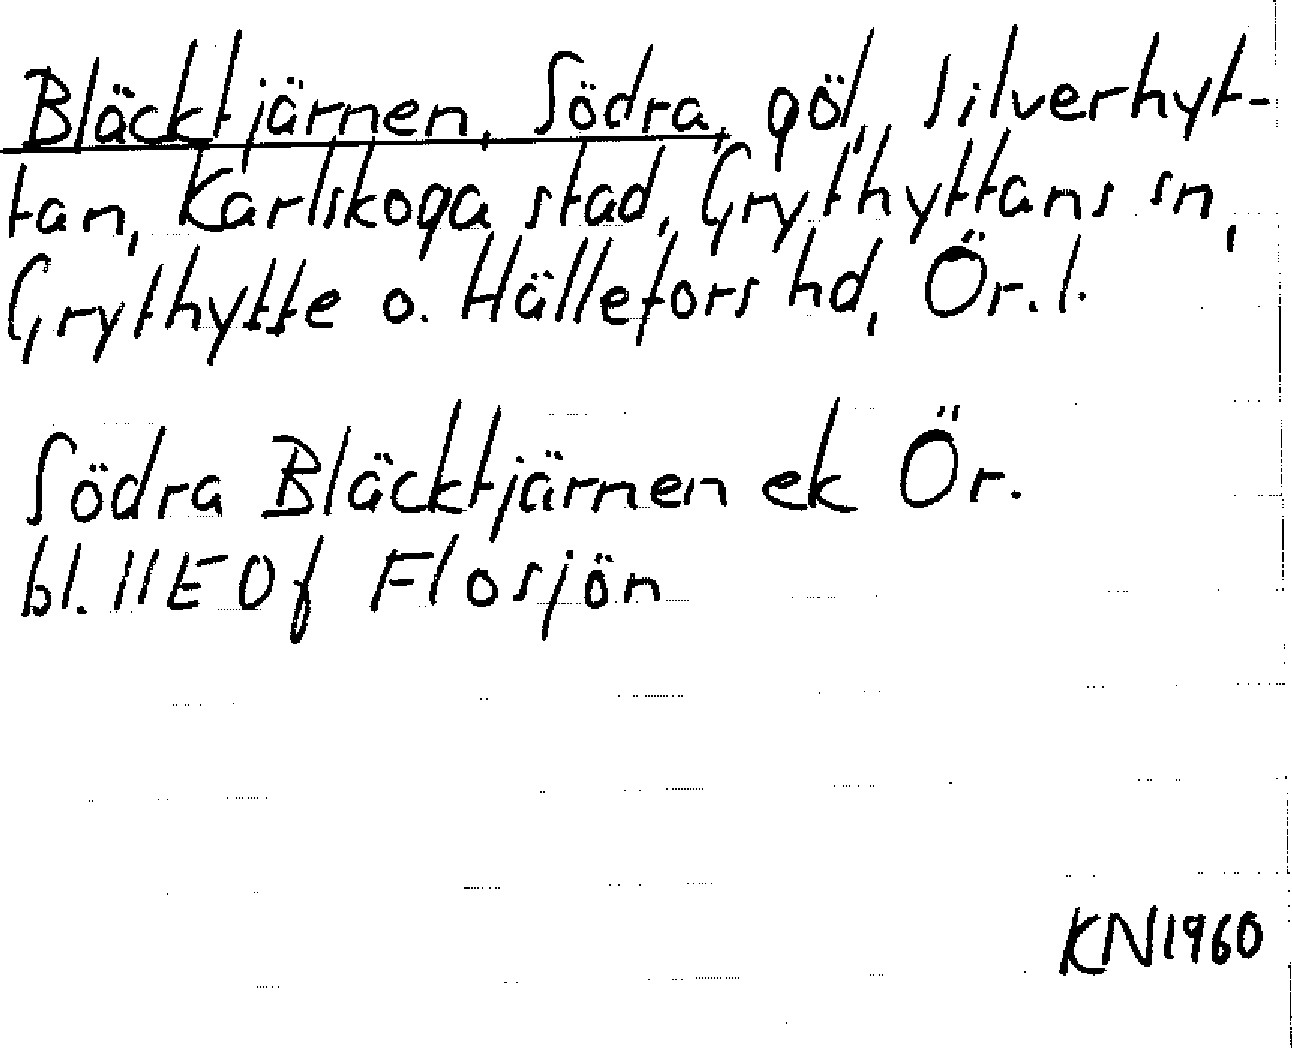 Bläcktjärnen, Södra, göl, Silverhyt-
tan, Karlskoga stad, Grythyttans sn,
Grythytte o. Hällefors hd, Ör. l.
Södra Bläcktjärnen ek Ör.
bl. 11E0f Flosjön
KN1960